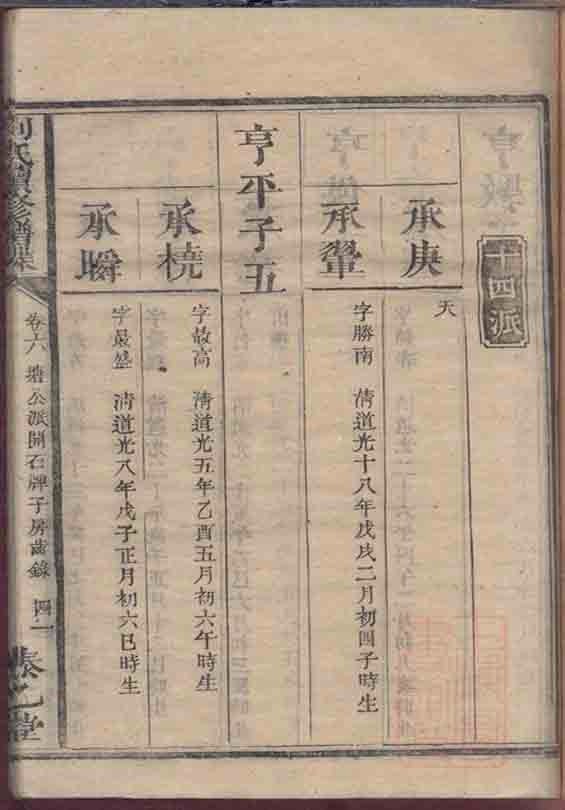 十四派
承庚
天
承鞏
字勝南 清道光十八年戊戌二月初四子時生
亨平子五
承橈
字敬高 清道光五年乙酉五月初六午時生
承瞬
字最盛 清道光八年戊子正月初六巳時生
劉氏續修譜牒
卷六 塘公派開石牌子房齒錄 四一